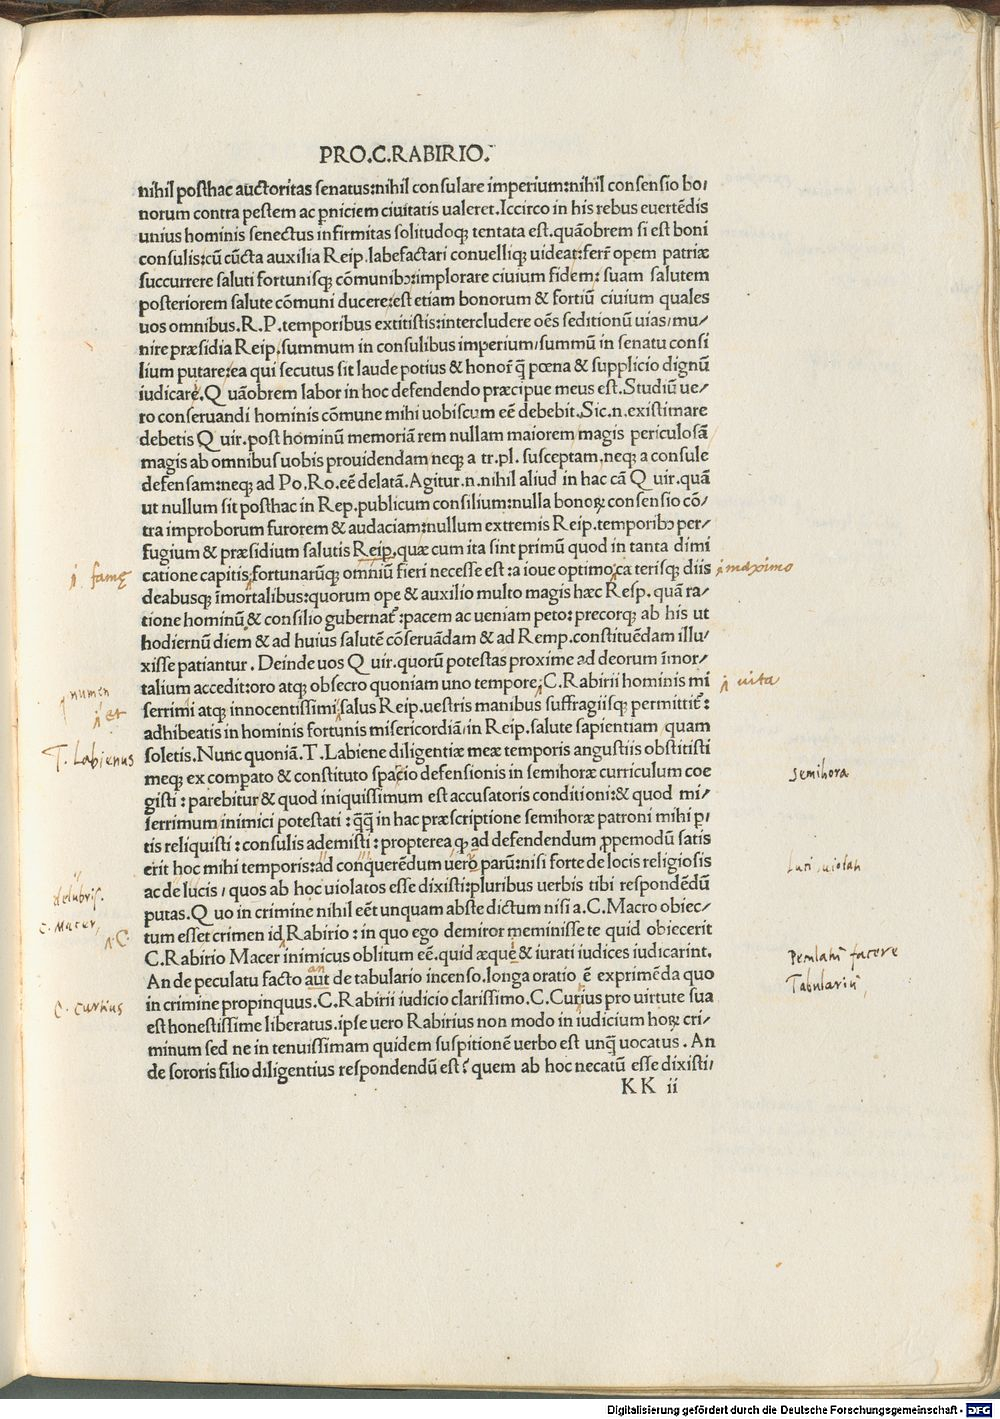 PRO.C.RABIRIO.
nihil posthac auctoritas senatus:nihil consulare imperium:nihil consensio bo/
norum contra pestem ac ꝑniciem ciuitatis ualeret.Iccirco in his rebus euertēdis
unius hominis senectus infirmitas solitudoqꝫ tentata est.quāobrem si est boni
consulis:cū cūcta auxilia Reip.labefactari conuelliqꝫ uideat:ferr̄ opem patriæ
succurrere saluti fortunisqꝫ cōmunibꝰ:implorare ciuium fidem: suam salutem
posteriorem salute cōmuni ducere:est etiam bonorum & fortiū ciuium quales
uos omnibus.R.P.temporibus extitistis:intercludere oēs seditionū uias/mu/
nire præsidia Reip.summum in consulibus imperium/summū in senatu consi
lium putare:ea qui secutus sit laude potius & honor̄ q̄ pœna & supplicio dignū
iudicare.Q uāobrem labor in hoc defendendo præcipue meus est.Studiū ue/
ro conseruandi hominis cōmune mihi uobiscum eē debebit.Sic.n.existimare
debetis Q uir.post hominū memoriā rem nullam maiorem magis periculosā
magis ab omnibus uobis prouidendam neqꝫ a tr.pl. susceptam,neqꝫ a consule
defensam:neqꝫ ad Po.Ro.eē delatā.Agitur.n.nihil aliud in hac cā Q uir.quā
ut nullum sit posthac in Rep.publicum consilium:nulla bonoꝝ consensio cō/
tra improborum furorem & audaciam:nullum extremis Reip.temporibꝰ per/
fugium & præsidium salutis Reip.quæ cum ita sint primū quod in tanta dimi
i. famę catione capitis fortunarūqꝫ omniū fieri necesse est :a ioue optimo ca terisqꝫ diis i maximo
deabusqꝫ īmortalibus:quorum ope & auxilio multo magis hæc Resp. quā ra/
tione hominū & consilio gubernat᷑ :pacem ac ueniam peto: precorqꝫ ab his ut
hodiernū diem & ad huius salutē cōseruādam & ad Remp.constituēdam illu/
xisse patiantur . Deinde uos Q uir.quorū potestas proxime ad deorum īmor/
talium accedit:oro atqꝫ obsecro quoniam uno tempore C.Rabirii hominis mi i uita
numen
i et serrimi atqꝫ innocentissimi salus Reip.uestris manibus suffragiisqꝫ permittit᷑:
adhibeatis in hominis fortunis misericordiā/in Reip.salute sapientiam quam
T. Labienus soletis.Nunc quoniā.T.Labiene diligentiæ meæ temporis angustiis obstitisti
meqꝫ ex comparato & constituto spacio defensionis in semihoræ curriculum coe semihora
gisti : parebitur & quod iniquissimum est accusatoris conditioni:& quod mi/
serrimum inimici potestati : q̄q̄ in hac præscriptione semihoræ patroni mihi ꝑ/
tis reliquisti : consulis ademisti : propterea qꝫ ad defendendum ꝓpemodū satis
erit hoc mihi temporis:ad conquerēdum uero parū:nisi forte de locis religiosis
delubris. ac de lucis / quos ab hoc uiolatos esse dixisti:pluribus uerbis tibi respondēdū Luci uiolati
C. Macer, putas.Q uo in crimine nihil eēt unquam abs te dictum nisi a.C.Macro obiec/
.C. tum esset crimen id Rabirio : in quo ego demiror meminisse te quid obiecerit
C.Rabirio Macer inimicus oblitum eē.quid æque & iurati iudices iudicarint.
an
An de peculatu facto aut de tabulario incenso.longa oratio ē exprimēda quo facere
C. Curtius in crimine propinquus.C.Rabirii iudicio clarissimo.C.Curius pro uirtute sua Tabulariū
est honestissime liberatus.ipse uero Rabirius non modo in iudicium hoꝝ cri/
minum sed ne in tenuissimam quidem suspitionē uerbo est unq̄ uocatus . An
de sororis filio diligentius respondendū est: quem ab hoc necatū esse dixisti/
KK ii
Digitalisierung gefördert durch die Deutsche Forschungsgemeinschaft - DFG